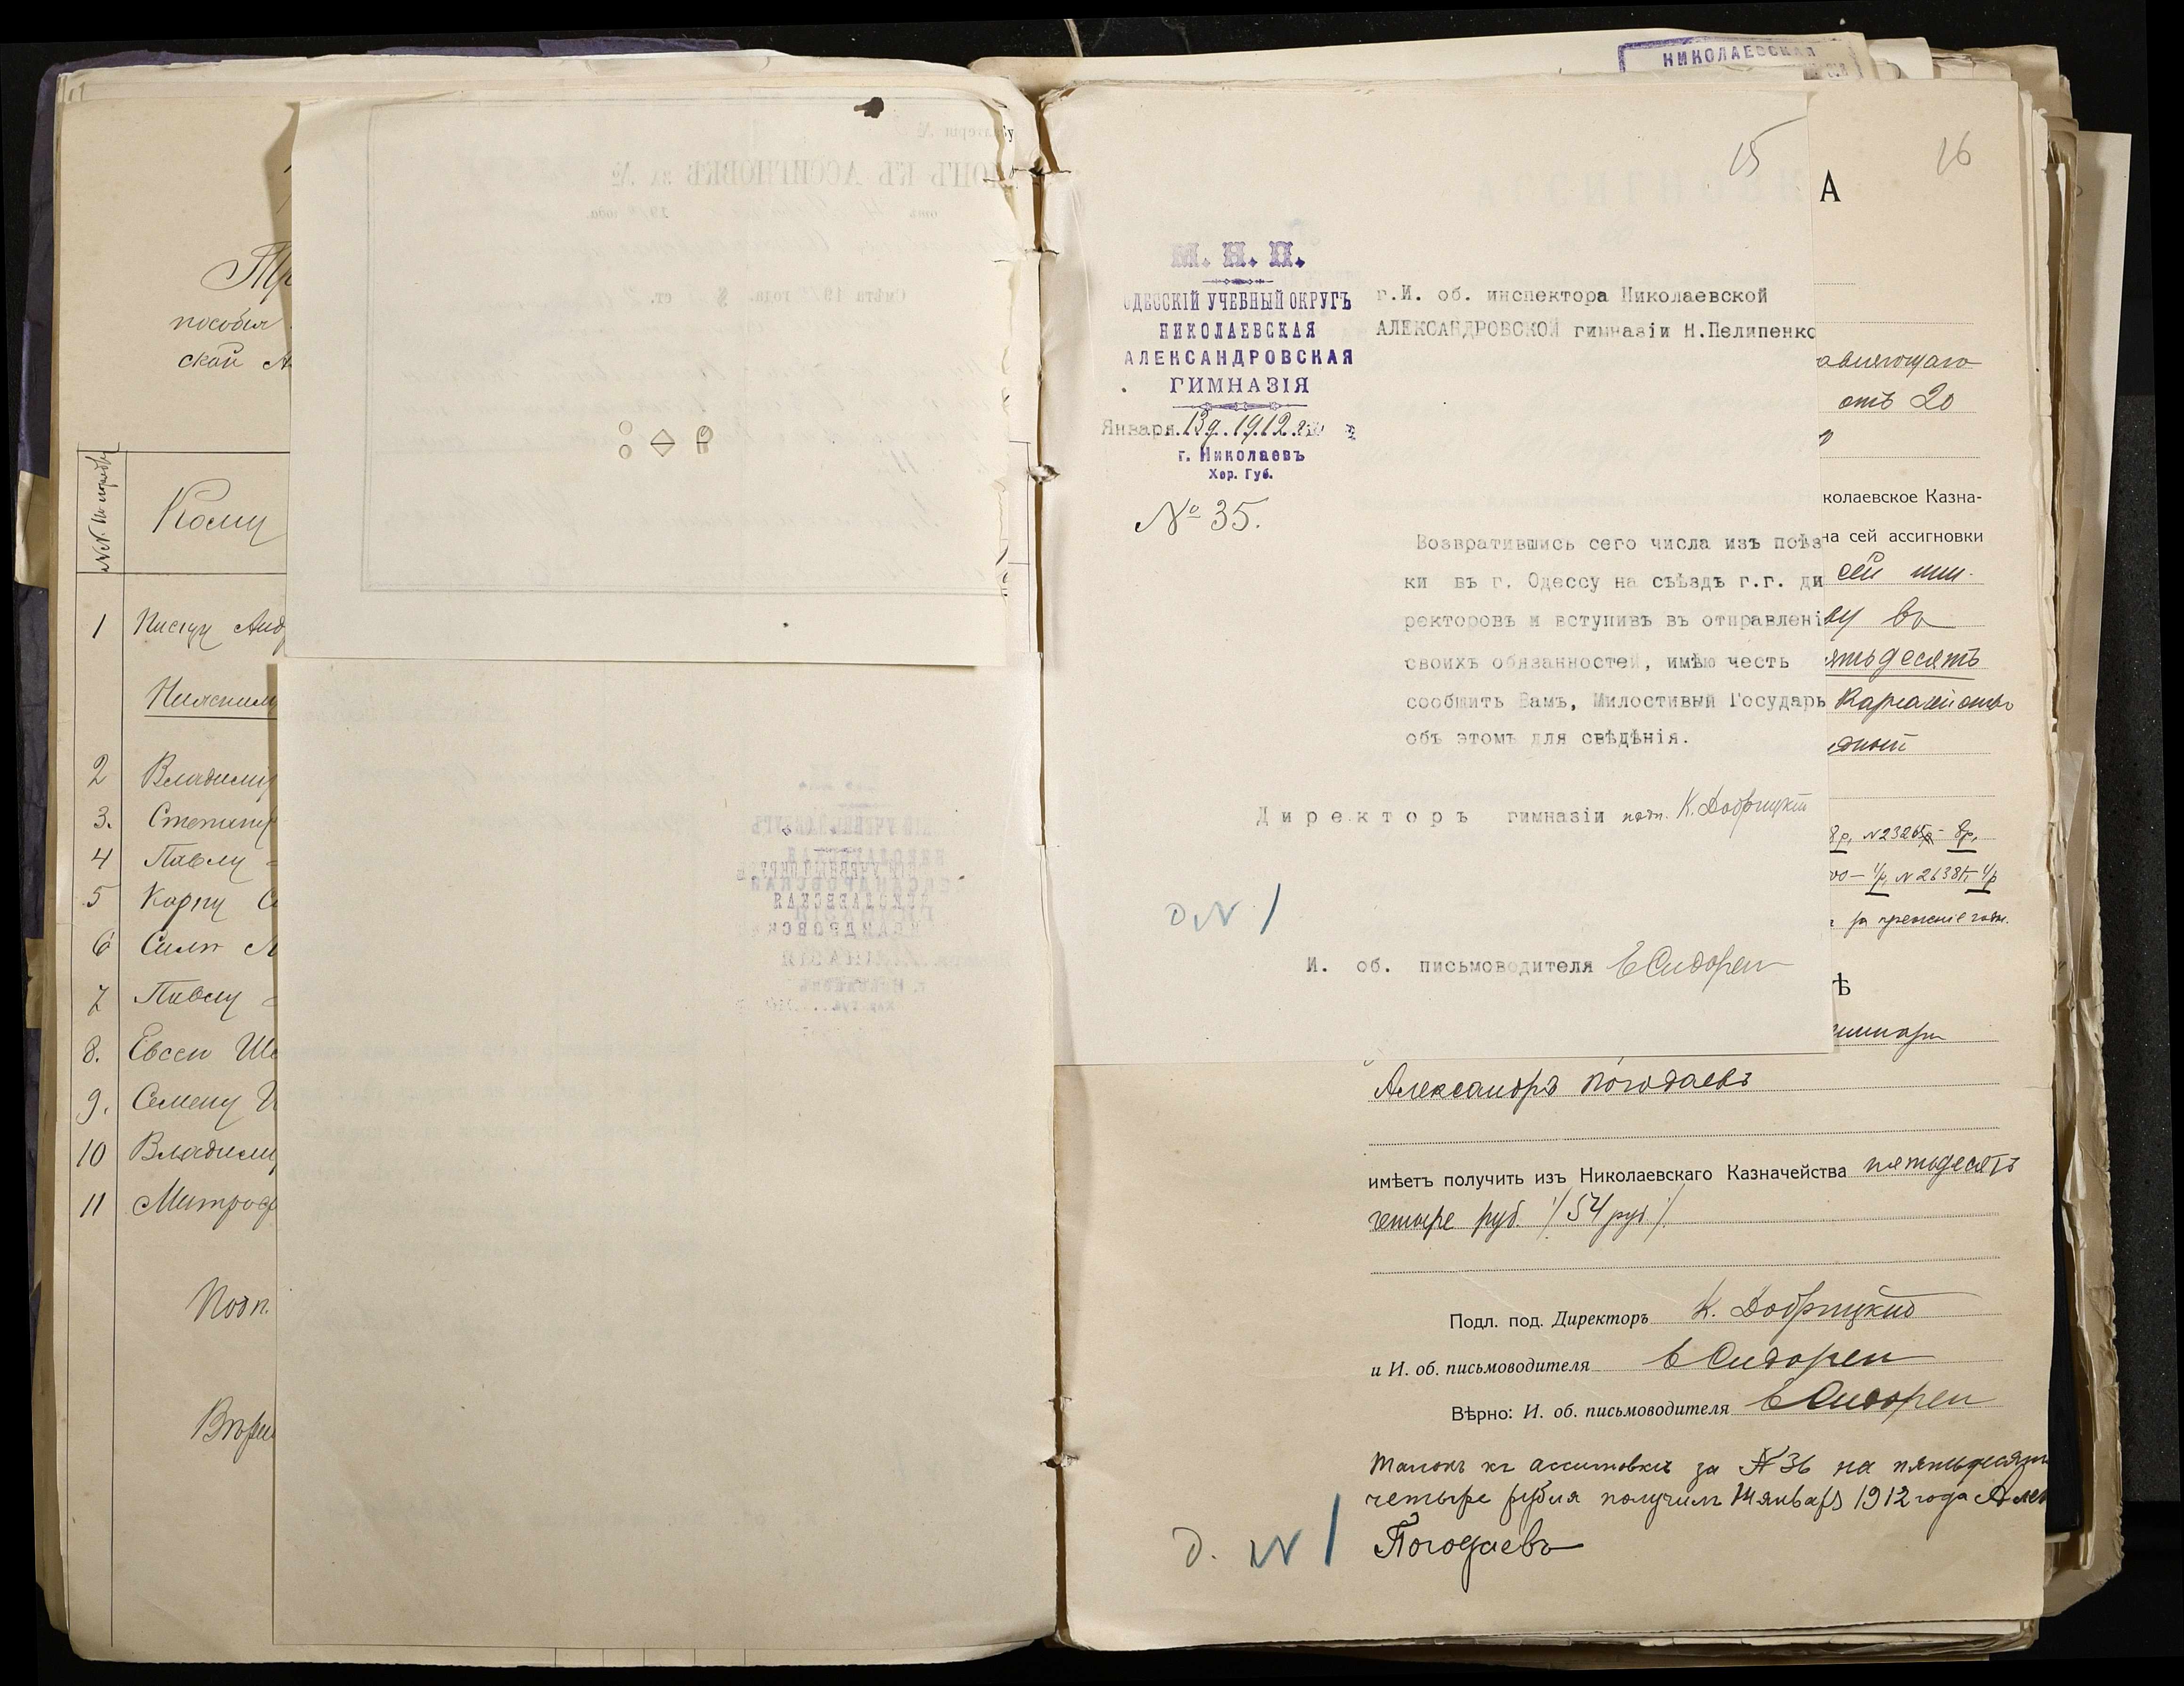 пособия
ской А
№№ по порядку
Кому
1
2 Владимір
3. Степану
4 Павлу
5 Карпу С
6 Силѣ М
7 Павлу
8. Евсею Ше
9. Семену И
10 Владимі
11 Митроф
Подп.
Вѣрн
КЪ АССИГНОВКѢ за №
Смѣта 191 года. § ст.
НИКОЛАЕВСКАЯ
15
16
А
М. Н. П.
ОДЕССКІЙ УЧЕБНЫЙ ОКРУГЪ
НИКОЛАЕВСКАЯ
АЛЕКСАНДРОВСКАЯ
ГИМНАЗІЯ
Января 13 д. 1912 г.
г. Николаевъ
Хер. Губ.
№ 35.
г.И. об. инспектора Николаевской
АЛЕКСАНДРОВСКОЙ гимназіи Н.Пелипенко
Возвратившись сего числа изъ поѣз
ки въ г. Одессу на съѣздъ г.г. ди
ректоровъ и вступивъ въ отправлені
своихъ обязанностей, имѣю честь
сообщить Вамъ, Милостивый Государь
объ этомъ для свѣдѣнія.
Директоръ гимназіи подп. К. Добрицкій
Д № 1
И. об. письмоводителя Е Сидорен
авляющаго
отъ 20
колаевское Казна-
на сей ассигновки
сей
ву во
ятьдесятъ
8 р, № 23265 - 8 р,
00 - 4 р, № 26385 - 4 р
за прежніе годы.
ѣ
Александръ Погодаевъ
имѣетъ получить изъ Николаевскаго Казначейства пятьдесятъ
четыре руб. /54 руб/
Подл. под. Директоръ К. Добрицкій
и И. об. письмоводителя Е Сидорен
Вѣрно: И. об. письмоводителя Е Сидорен
Талонъ къ ассигновкѣ за № 36 на пятьдесятъ
четыре рубля получилъ 14 января 1912 года Алек
Погодаевъ
Д. № 1